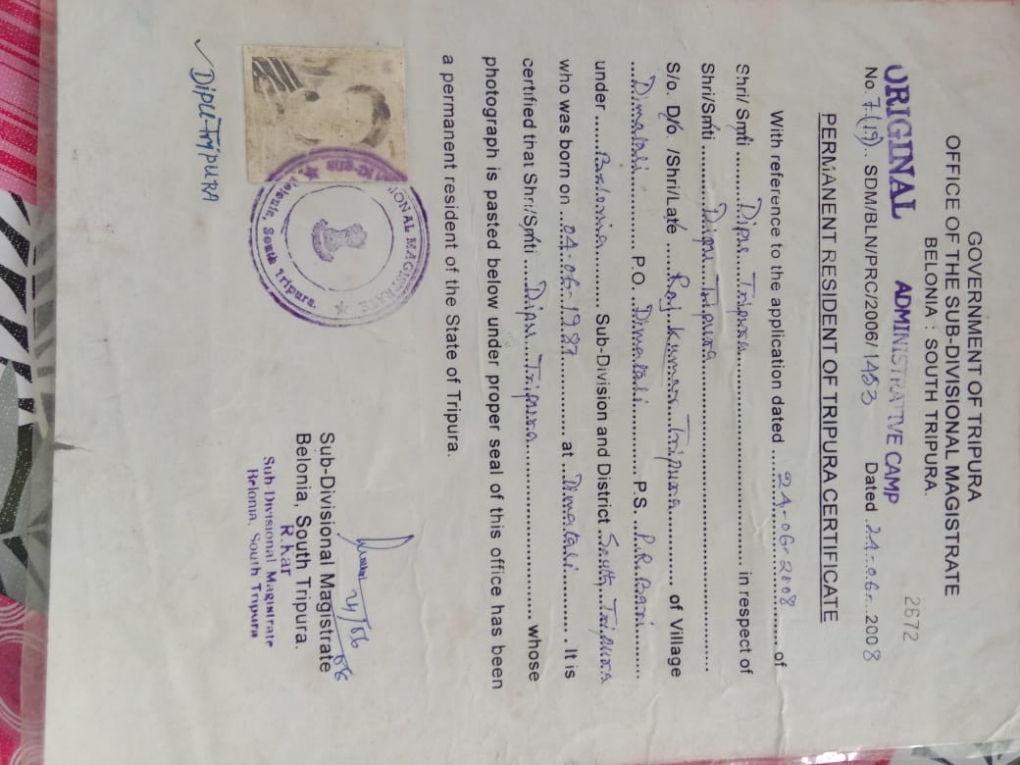 GOVERNMENT OF TRIPURA
OFFICE OF THE SUB-DIVISIONAL MAGISTRATE
BELONIA : SOUTH TRIPURA.
2672
ORIGINAL ADMINISTRATIVE CAMP
No. 7(19).. SDM/BLN/PRC/2006/1453 Dated .24.06-..2008
PERMANENT RESIDENT OF TRIPURA CERTIFICATE
With reference to the application dated ...24-06-2008............ of
Shri/ Smti .........Dipu...Tripura.................... in respect of
Shri/Smti ..........Dipu...Tripura..........................................
S/o. D/o /Shri/Late .....Raj..Kumar...Tripura............ of Village
....Dimatali............... P.O. ..Dimatali............. P.S. ..P.R.Bari.......
under ......Belonia........... Sub-Division and District South..Tripura
who was born on ...04-06-1987.............. at ...Dimatali............ . It is
certified that Shri/Smti .....Dipu...Tripura......................... whose
photograph is pasted below under proper seal of this office has been
a permanent resident of the State of Tripura.
SIONAL MAGISTRATE
Belonia, South Tripura.
21/06
Sub-Divisional Magistrate
Belonia, South Tripura.
R.Kar
Sub-Divisional Magistrate
Belonia, South Tripura
✓ Dipu Tripura